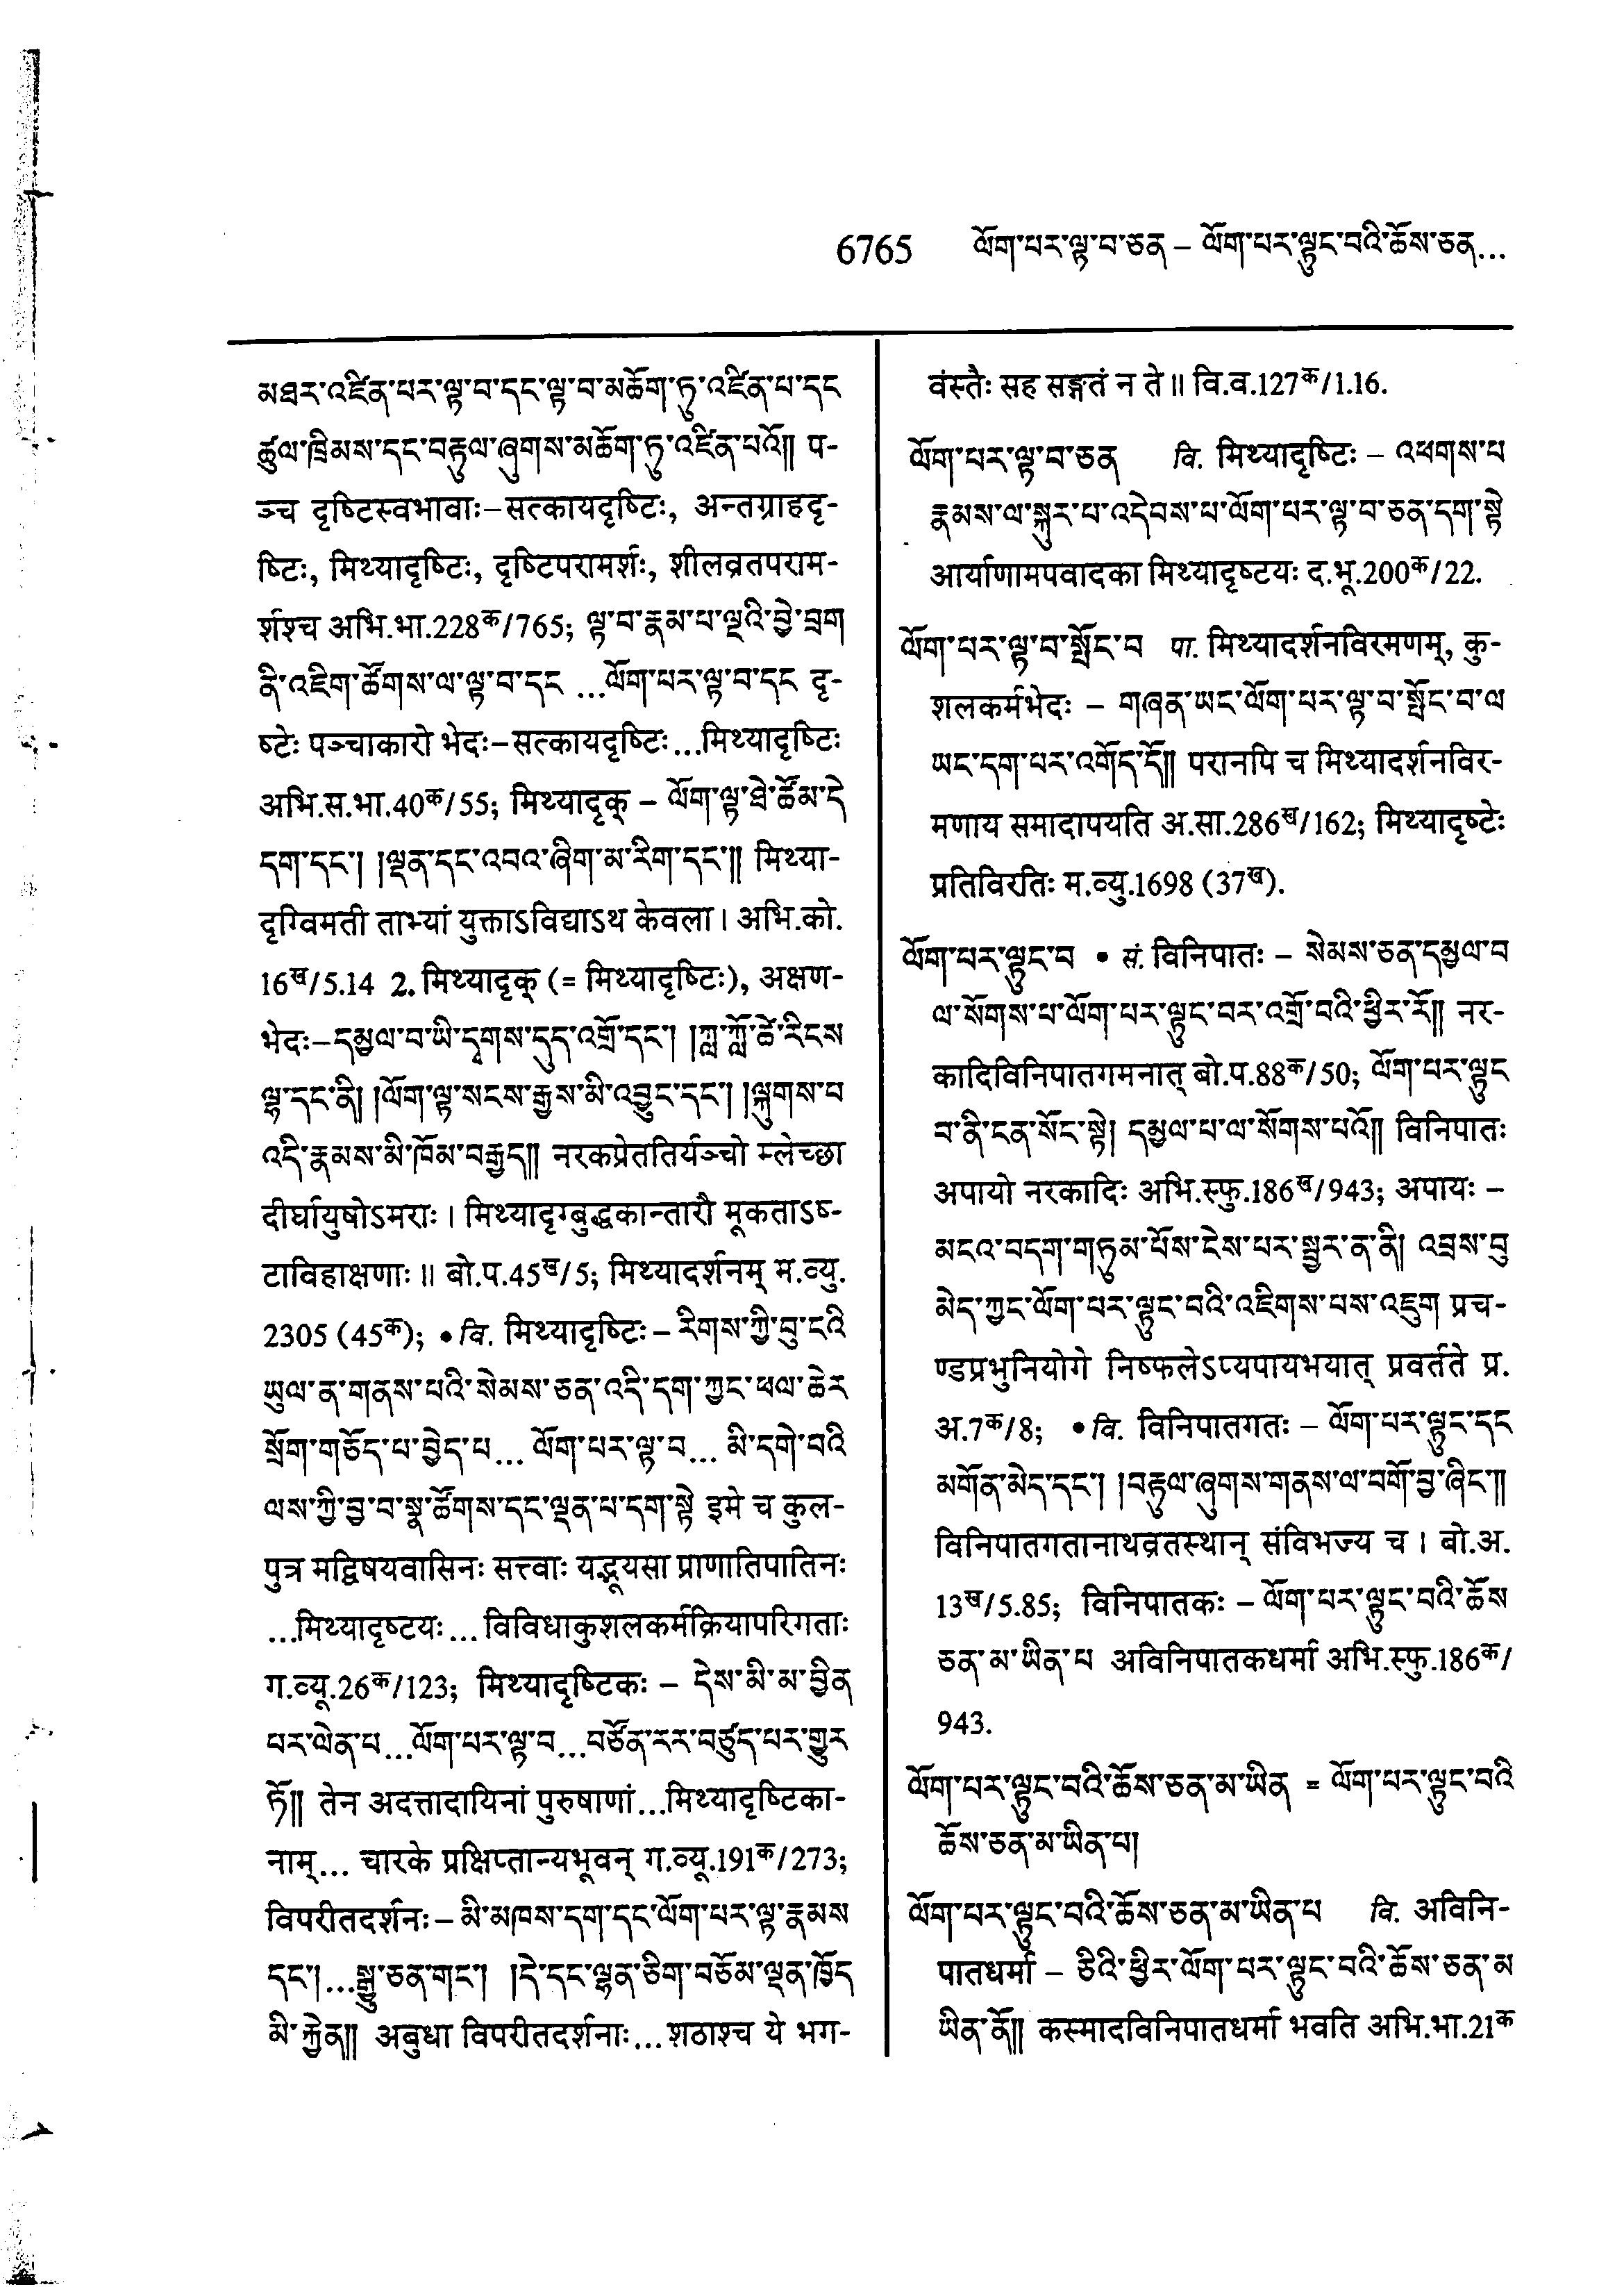 6765 ལོག་པར་ལྟ་བ་ཅན – ལོག་པར་ལྟུང་བའི་ཆོས་ཅན...
མཐར་འཛིན་པར་ལྟ་བ་དང་ལྟ་བ་མཆོག་ཏུ་འཛིན་པ་དང
ཚུལ་ཁྲིམས་དང་བརྟུལ་ཞུགས་མཆོག་ཏུ་འཛིན་པའོ།། प-
ञ्च दृष्टिस्वभावाः–सत्कायदृष्टिः, अन्तग्राहदृ-
ष्टिः, मिथ्यादृष्टिः, दृष्टिपरामर्शः, शीलव्रतपराम-
र्शश्च अभि.भा.228क/765; ལྟ་བ་རྣམ་པ་ལྔའི་བྱེ་བྲག
ནི་འཇིག་ཚོགས་ལ་ལྟ་བ་དང ...ལོག་པར་ལྟ་བ་དང दृ-
ष्टेः पञ्चाकारो भेदः–सत्कायदृष्टिः...मिथ्यादृष्टिः
अभि.स.भा.40क/55; मिथ्यादृक् – ལོག་ལྟ་ཐེ་ཚོམ་དེ
དག་དང་། །ལྡན་དང་འབའ་ཞིག་མ་རིག་དང་།། मिथ्या-
दृग्विमती ताभ्यां युक्ताऽविद्याऽथ केवला। अभि.को.
16ख/5.14 2. मिथ्यादृक् (= मिथ्यादृष्टिः), अक्षण-
भेदः–དམྱལ་བ་ཡི་དྭགས་དུད་འགྲོ་དང་། །ཀླ་ཀློ་ཚེ་རིངས
ལྷ་དང་ནི། །ལོག་ལྟ་སངས་རྒྱས་མི་འབྱུང་དང་། །ལྐུགས་པ
འདི་རྣམས་མི་ཁོམ་བརྒྱད།། नरकप्रेततिर्यञ्चो म्लेच्छा
दीर्घायुषोऽमराः। मिथ्यादृग्बुद्धकान्तारौ मूकताऽष-
टाविहाक्षणाः॥ बो.प.45ख/5; मिथ्यादर्शनम् म.व्यु.
2305 (45क); • वि. मिथ्यादृष्टिः – རིགས་ཀྱི་བུ་ངའི
ཡུལ་ན་གནས་པའི་སེམས་ཅན་འདི་དག་ཀྱང་ཕལ་ཆེར
སྲོག་གཅོད་པ་བྱེད་པ... ལོག་པར་ལྟ་བ... མི་དགེ་བའི
ལས་ཀྱི་བྱ་བ་སྣ་ཚོགས་དང་ལྡན་པ་དག་སྟེ इमे च कुल-
पुत्र मद्विषयवासिनः सत्त्वाः यद्भूयसा प्राणातिपातिनः
...मिथ्यादृष्टयः... विविधाकुशलकर्मक्रियापरिगताः
ग.व्यू.26क/123; मिथ्यादृष्टिकः – དེས་མི་མ་བྱིན
པར་ལེན་པ...ལོག་པར་ལྟ་བ...བཙོན་རར་བཙུད་པར་གྱུར
ཏོ།། तेन अदत्तादायिनां पुरुषाणां...मिथ्यादृष्टिका-
नाम्... चारके प्रक्षिप्तान्यभूवन् ग.व्यू.191क/273;
विपरीतदर्शनः – མི་མཁས་དག་དང་ལོག་པར་ལྟ་རྣམས
དང་། ...སྒྱུ་ཅན་གང་། །དེ་དང་ལྷན་ཅིག་བཅོམ་ལྡན་ཁྱོད
མི་རྒྱེན།། अबुधा विपरीतदर्शनाः...शठाश्च ये भग-
वंस्तैः सह सङ्गतं न ते॥ वि.व.127क/1.16.
ལོག་པར་ལྟ་བ་ཅན वि. मिथ्यादृष्टिः – འཕགས་པ
རྣམས་ལ་སྐུར་པ་འདེབས་པ་ལོག་པར་ལྟ་བ་ཅན་དག་སྟེ
आर्याणामपवादका मिथ्यादृष्टयः द.भू.200क/22.
ལོག་པར་ལྟ་བ་སྤོང་བ पा. मिथ्यादर्शनविरमणम्, कु-
शलकर्मभेदः – གཞན་ཡང་ལོག་པར་ལྟ་བ་སྤོང་བ་ལ
ཡང་དག་པར་འགོད་དོ།། परानपि च मिथ्यादर्शनविर-
मणाय समादापयति अ.सा.286ख/162; मिथ्यादृष्टेः
प्रतिविरतिः म.व्यु.1698 (37ख).
ལོག་པར་ལྟུང་བ • सं. विनिपातः – སེམས་ཅན་དམྱལ་བ
ལ་སོགས་པ་ལོག་པར་ལྟུང་བར་འགྲོ་བའི་ཕྱིར་རོ།། नर-
कादिविनिपातगमनात् बो.प.88क/50; ལོག་པར་ལྟུང
བ་ནི་ངན་སོང་སྟེ། དམྱལ་པ་ལ་སོགས་པའོ།། विनिपातः
अपायो नरकादिः अभि.स्फु.186ख/943; अपायः –
མངའ་བདག་གཏུམ་པོས་ངེས་པར་སྦྱར་ན་ནི། འབྲས་བུ
མེད་ཀྱང་ལོག་པར་ལྟུང་བའི་འཇིགས་པས་འཇུག प्रच-
ण्डप्रभुनियोगे निष्फलेऽप्यपायभयात् प्रवर्तते प्र.
अ.7क/8; • वि. विनिपातगतः – ལོག་པར་ལྟུང་དང
མགོན་མེད་དང་། །བརྟུལ་ཞུགས་གནས་ལ་བགོ་བྱ་ཞིང་།།
विनिपातगतानाथव्रतस्थान् संविभज्य च। बो.अ.
13ख/5.85; विनिपातकः – ལོག་པར་ལྟུང་བའི་ཆོས
ཅན་མ་ཡིན་པ अविनिपातकधर्मा अभि.स्फु.186क/
943.
ལོག་པར་ལྟུང་བའི་ཆོས་ཅན་མ་ཡིན = ལོག་པར་ལྟུང་བའི
ཆོས་ཅན་མ་ཡིན་པ།
ལོག་པར་ལྟུང་བའི་ཆོས་ཅན་མ་ཡིན་པ वि. अविनि-
पातधर्मा – ཅིའི་ཕྱིར་ལོག་པར་ལྟུང་བའི་ཆོས་ཅན་མ
ཡིན་ནོ།། कस्मादविनिपातधर्मा भवति अभि.भा.21क